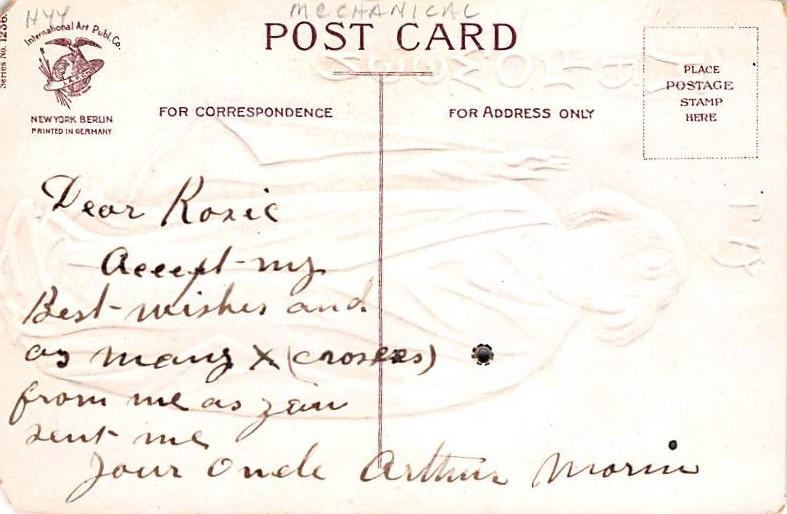 HYY
MECHANICAL
Series No. 1236.
International Art Publ. Co.
NEW YORK BERLIN
PRINTED IN GERMANY
POST CARD
FOR CORRESPONDENCE
FOR ADDRESS ONLY
PLACE
POSTAGE
STAMP
HERE
Dear Rosie
Accept my
Best wishes and
as many X (crosees)
from me as
sent me
Your Oncle Arthur Morin